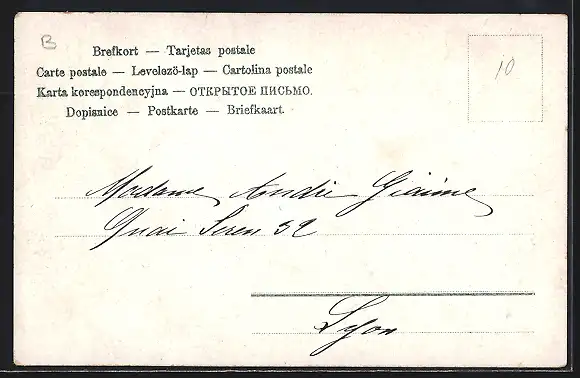 B
Brefkort — Tarjetas postale
Carte postale — Levelező-lap — Cartolina postale
Karta korespondencyjna — ОТКРЫТОЕ ПИСЬМО.
Dopisnice — Postkarte — Briefkaart.
10
Madame André Giaime
Quai Seren 52
Lyon